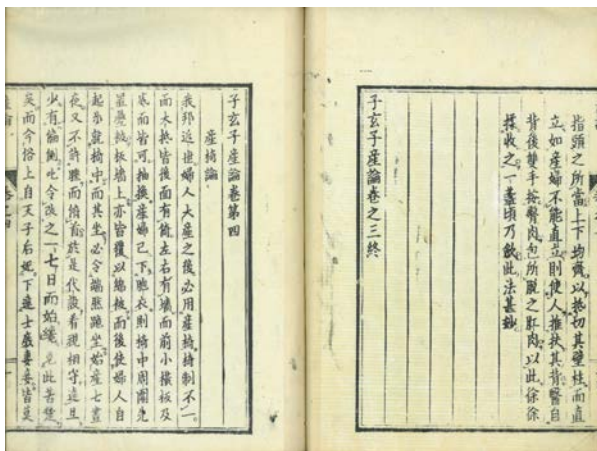 指頭之所當上下均齊以熱切其壁柱而直
立如産婦不能直立則使人推扶其背醫自
背後雙手搭臀肉包所脫之肛肉以此徐徐
採收之一盞頃乃斂此法甚妙
子玄子産論卷之三終
子玄子産論卷第四
産椅論
我邦近世婦人大産之後必用産椅椅制不一
而大抵皆後面有倚左右有墻而前小橫板及
底面皆可抽換産婦已下胞衣則椅中周圍
疊被板墻上亦皆覆以綿被而後使婦人自
起步就椅中而其坐必令端然跪坐始産七晝
夜又不許睡而倚首於是代嚴看視相守造且
少有偏側此令改之一七日而始
矣而今俗上自天子后妃下逮士庶妻妾皆莫